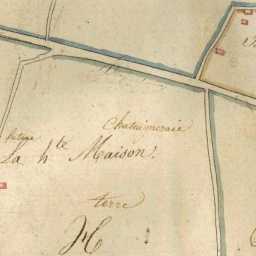 Chateimeraie
La h^te Maison.
terre
H